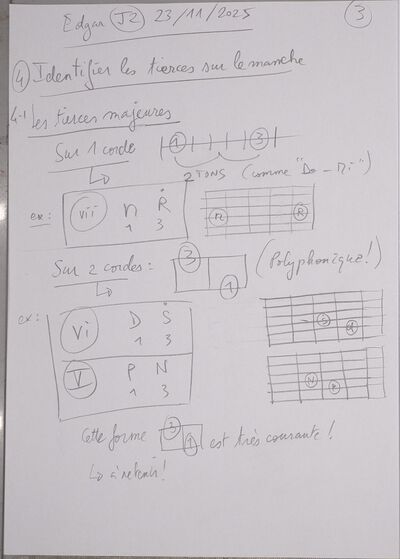 Edgar J2 23/11/2025 3
4 Identifier les tierces sur le manche
4-1 Les tierces majeures
Sur 1 corde 1 3
2 TONS (comme "Do - Mi")
ex: vii n Ṙ n R
1 3
Sur 2 cordes: 3 1 (Polyphonique!)
ex: vi D Ṡ S
1 3
V P N N P
1 3
Cette forme 3 1 est très courante!
↳ à retenir!